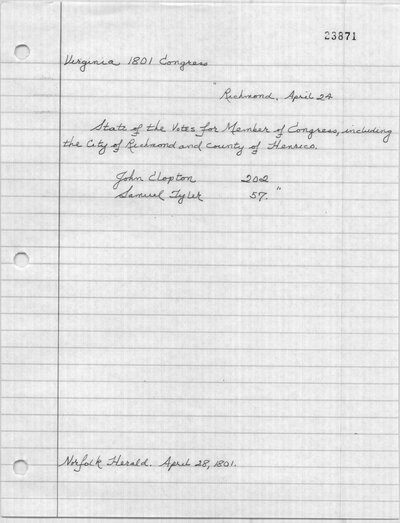 23871
Virginia 1801 Congress
"Richmond, April 24
State of the Votes for Member of Congress, including
the City of Richmond and County of Henrico.
John Clopton 202
Samuel Tyler 57."
Norfolk Herald. April 28, 1801.